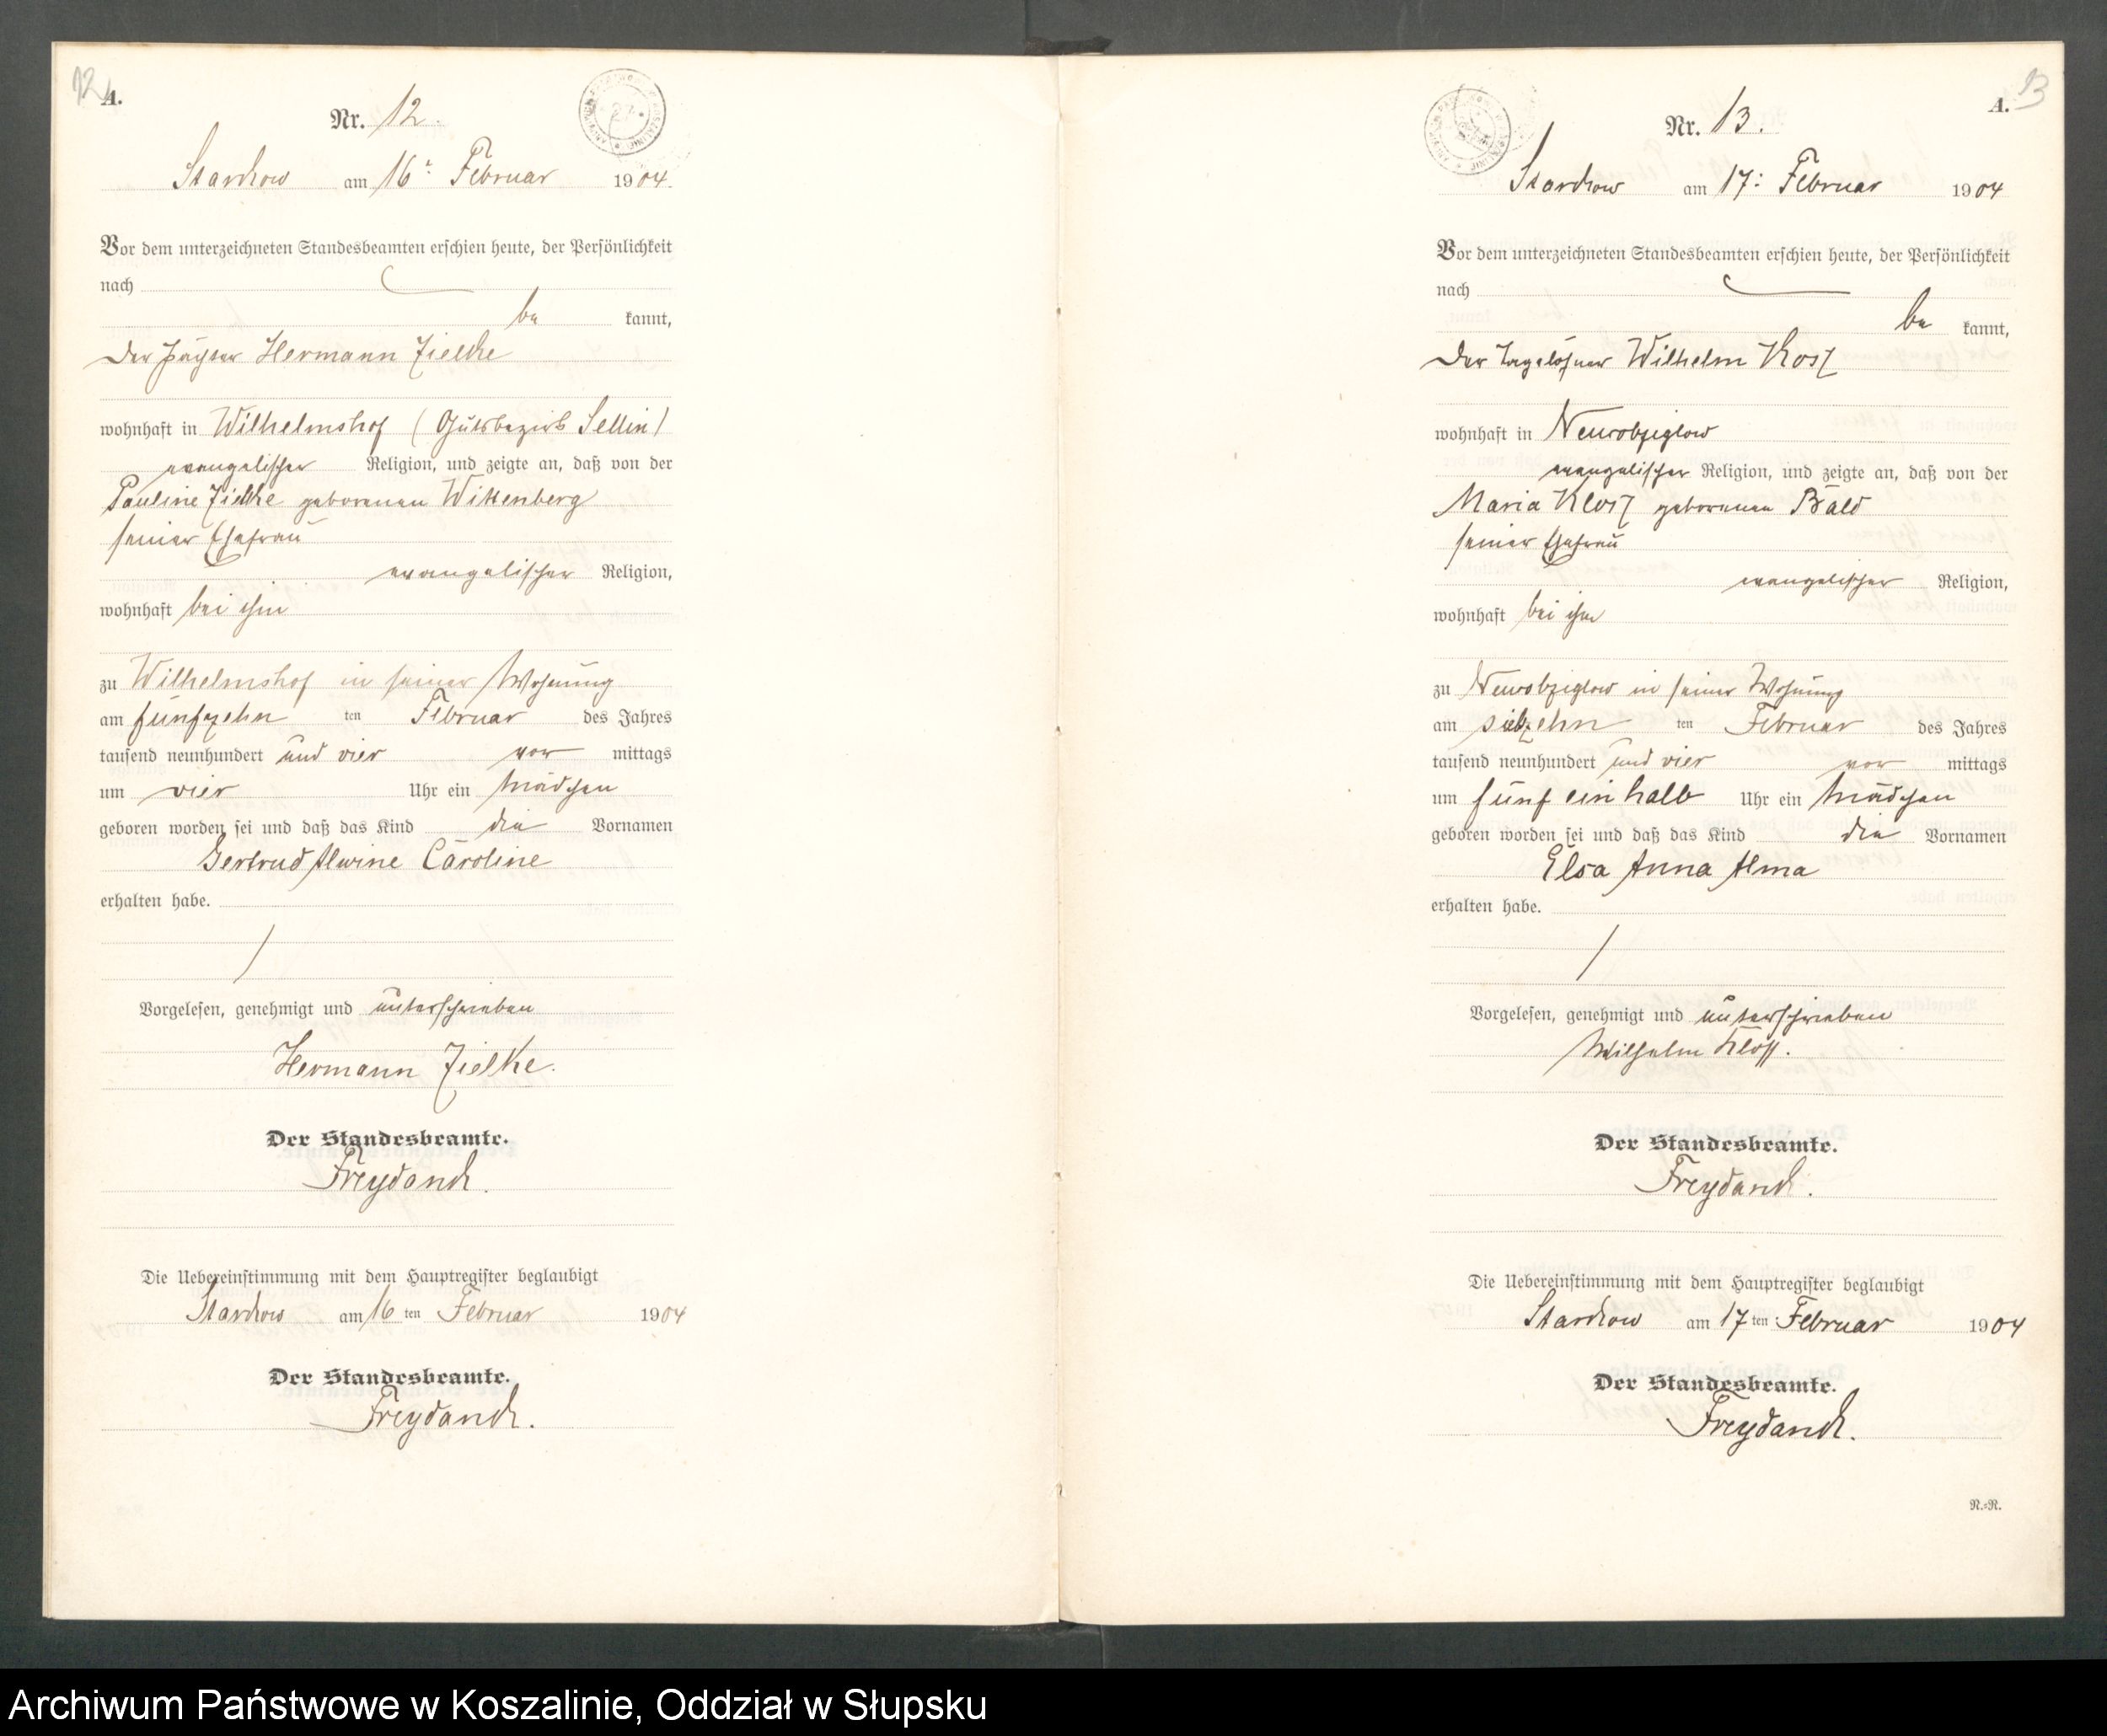 12
A.
Nr. 12.
Starkow am 16ᵗ Februar 1904.
Vor dem unterzeichneten Standesbeamten erschien heute, der Persönlichkeit
nach
be kannt,
der Pächter Hermann Zielke
wohnhaft in Wilhelmshof (Gutsbezirk Sellin)
evangelischer Religion, und zeigte an, daß von der
Pauline Zielke geborenen Wittenberg
seiner Ehefrau
evangelischer Religion,
wohnhaft bei ihm
zu Wilhelmshof in seiner Wohnung
am fünfzehn ten Februar des Jahres
tausend neunhundert und vier vor mittags
um vier Uhr ein Mädchen
geboren worden sei und daß das Kind die Vornamen
Gertrud Alwine Caroline
erhalten habe.
Vorgelesen, genehmigt und unterschrieben
Hermann Zielke.
Der Standesbeamte.
Freydanck.
Die Uebereinstimmung mit dem Hauptregister beglaubigt
Starkow am 16 ten Februar 1904
Der Standesbeamte.
Freydanck.
13
A.
Nr. 13.
Starkow am 17: Februar 1904
Vor dem unterzeichneten Standesbeamten erschien heute, der Persönlichkeit
nach
be kannt,
der Tagelöhner Wilhelm
wohnhaft in Neuwobziglow
evangelischer Religion, und zeigte an, daß von der
Maria Klosz geborenen Bald
seiner Ehefrau
evangelischer Religion,
wohnhaft bei ihm
zu Neuwobziglow in seiner Wohnung
am siebzehn ten Februar des Jahres
tausend neunhundert und vier vor mittags
um fünf ein halb Uhr ein Mädchen
geboren worden sei und daß das Kind die Vornamen
Elsa Anna Alma
erhalten habe.
Vorgelesen, genehmigt und unterschrieben
Wilhelm Kloß.
Der Standesbeamte.
Freydanck.
Die Uebereinstimmung mit dem Hauptregister beglaubigt
Starkow am 17 ten Februar 1904
Der Standesbeamte.
Freydanck.
N.=N.
Archiwum Państwowe w Koszalinie, Oddział w Słupsku